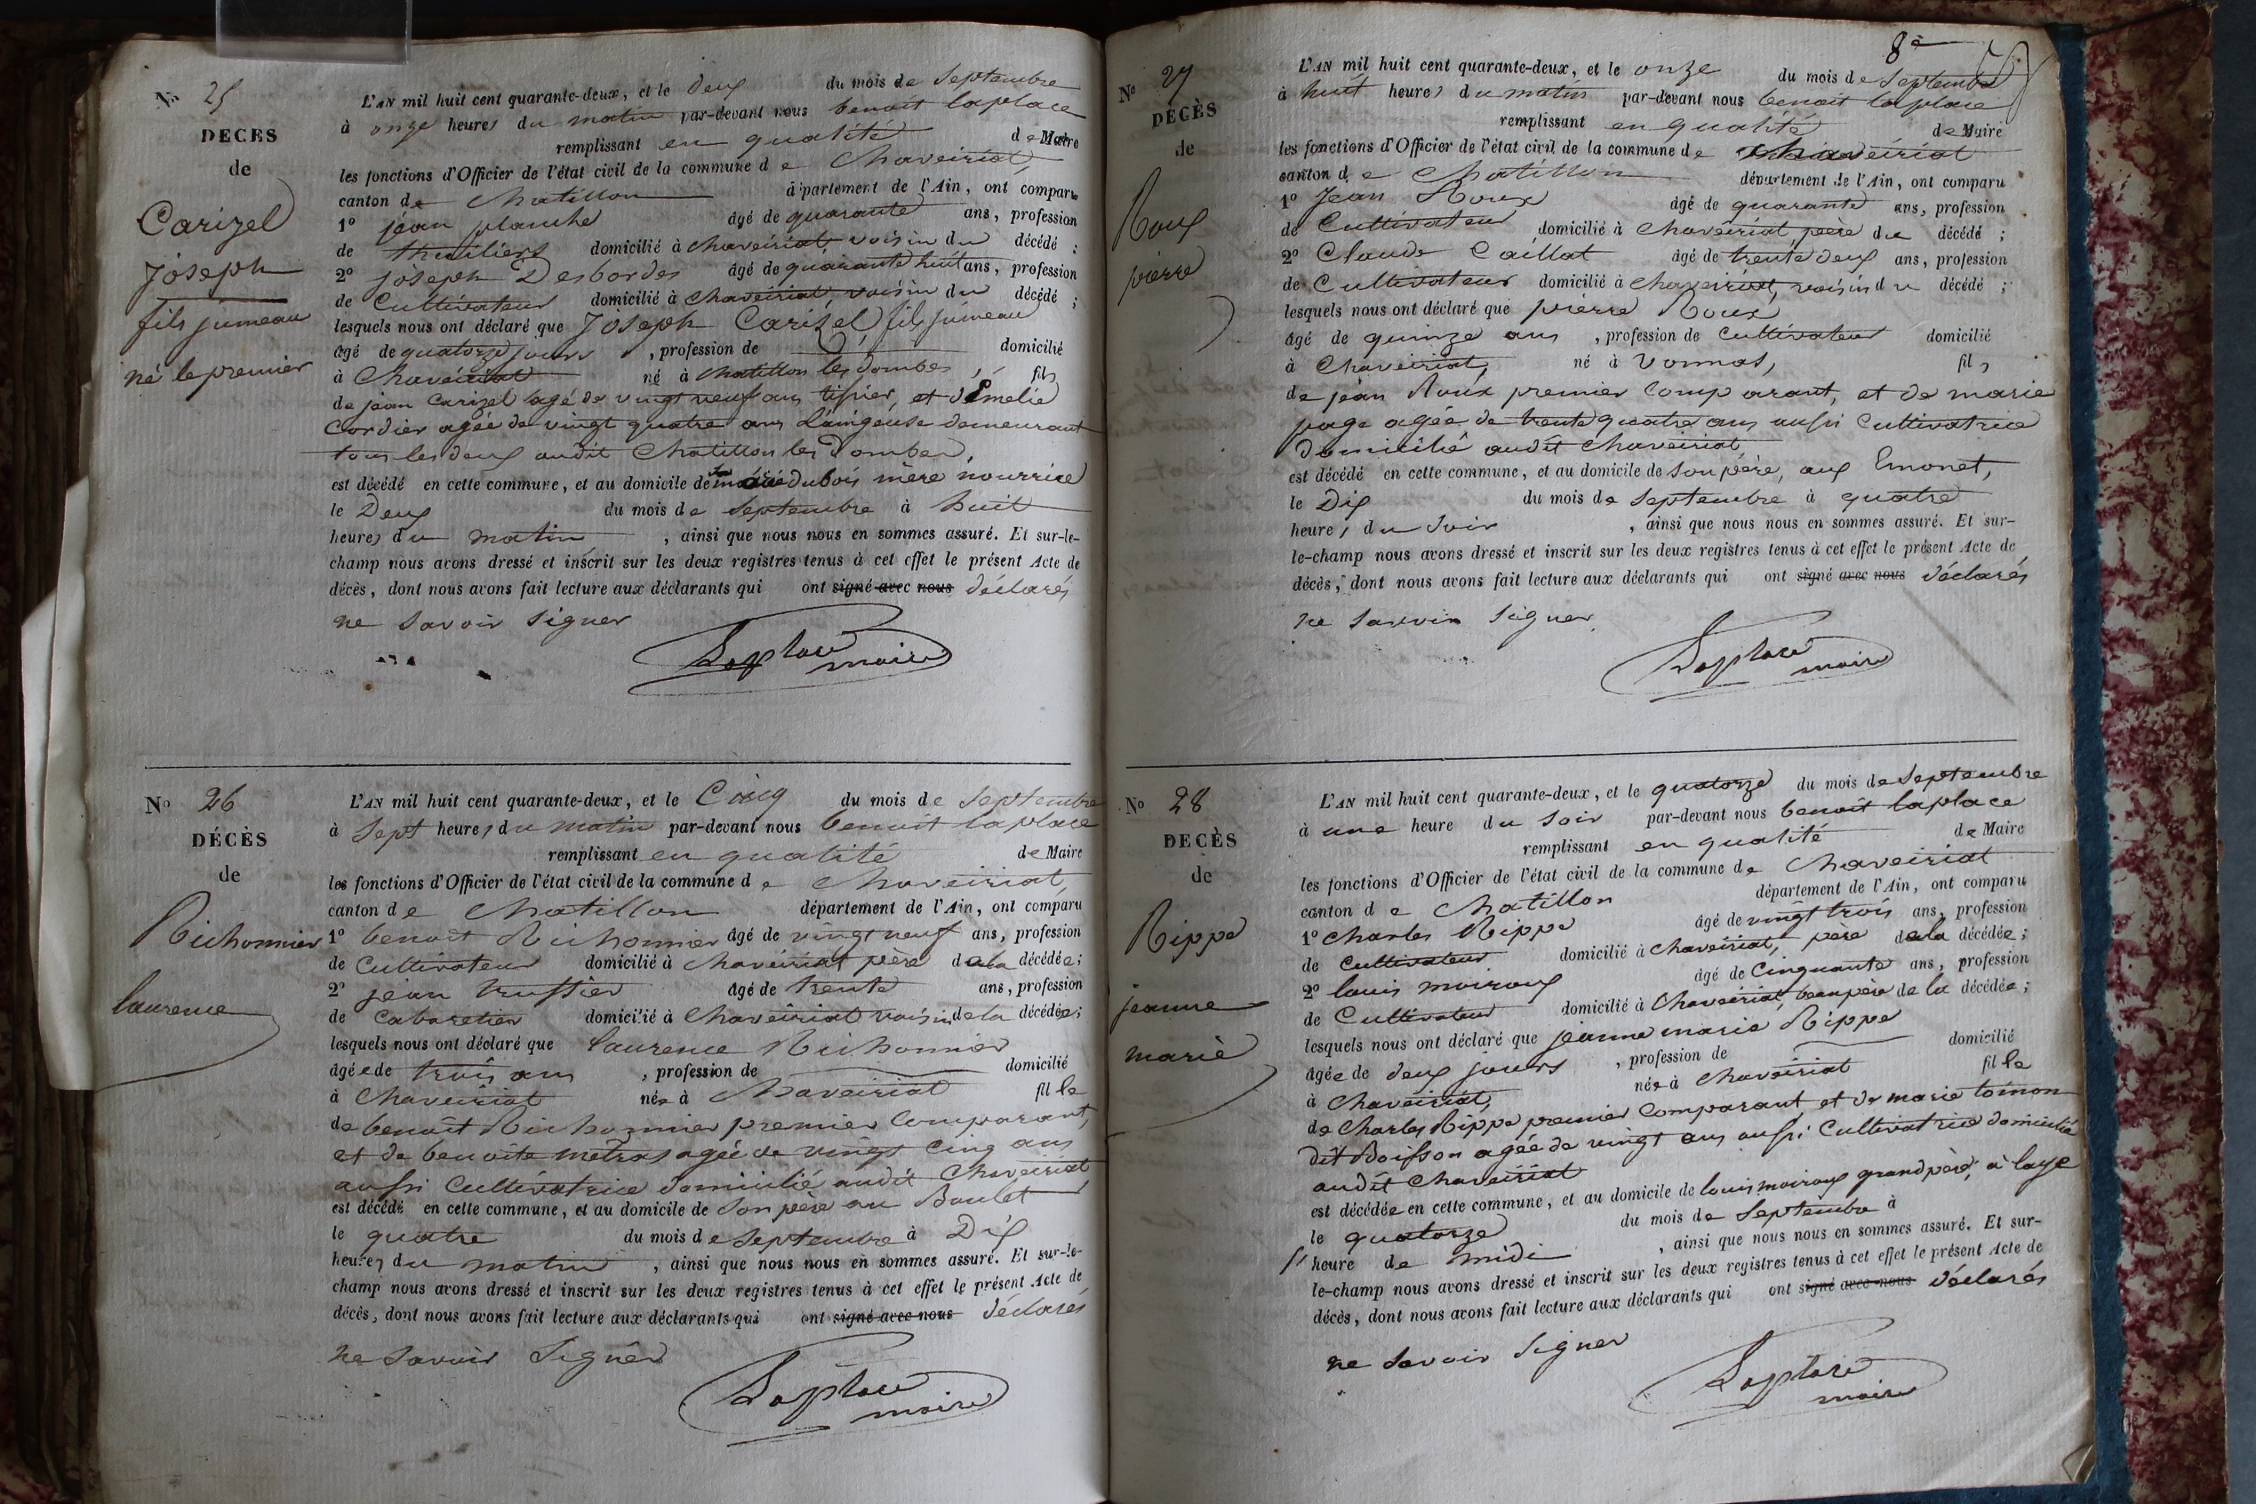 Nº 25
DÉCÈS
de
Carizel
Joseph
fils jumeau
né le premier
L'AN mil huit cent quarante-deux, et le deux du mois de Septembre
à onze heures du matin par-devant nous benoit laplace
remplissant en qualité de Maire
les fonctions d'Officier de l'état civil de la commune de Chaveiriat,
canton de Chatillon département de l'Ain, ont comparu
1º jean planche âgé de quarante ans, profession
de thuiliers domicilié à chaveiriat, voisin du décédé ;
2º joseph Desbordes âgé de quarante huit ans, profession
de Cultivateur domicilié à chaveiriat, voisin du décédé ;
lesquels nous ont déclaré que Joseph Carizel, fils jumeau
âgé de quatorze jours , profession de domicilié
à Chaveiriat né à chatillon les Dombes, fils
de jean Carizel agé de vingt neuf ans tissier, et d'Emelie
Cordier agée de vingt quatre ans demeurant
tous les deux audit Chatillon les Dombes,
est décédé en cette commune, et au domicile de dubois mère nourrice
le Deux du mois de Septembre à huit
heures du matin , ainsi que nous nous en sommes assuré. Et sur-le-
champ nous avons dressé et inscrit sur les deux registres tenus à cet effet le présent Acte de
décès, dont nous avons fait lecture aux déclarants qui ont signé avec nous déclarés
ne savoir signer
Laplace
maire
Nº 26
DÉCÈS
de
Richonnier
laurence
L'AN mil huit cent quarante-deux, et le Cinq du mois de Septembre
à Sept heures du matin par-devant nous benoit laplace
remplissant en qualité de Maire
les fonctions d'Officier de l'état civil de la commune de Chaveiriat,
canton de Chatillon département de l'Ain, ont comparu
1º benoit Richonnier âgé de vingt neuf ans, profession
de Cultivateur domicilié à Chaveiriat père de la décédée ;
2º jean truffier âgé de trente ans, profession
de Cabaretier domicilié à Chaveiriat voisin de la décédée ;
lesquels nous ont déclaré que laurence Richonnier
âgée de trois ans , profession de domicilié
à Chaveiriat née à Chaveiriat fille
de benoit Richonnier premier Comparant,
et de benoite métras agée de vingt Cinq ans
aussi Cultivatrice domicilié audit Chaveiriat
est décédé en cette commune, et au domicile de son père au Boulet
le quatre du mois de Septembre à Dix
heures du matin , ainsi que nous nous en sommes assuré. Et sur-le-
champ nous avons dressé et inscrit sur les deux registres tenus à cet effet le présent Acte de
décès, dont nous avons fait lecture aux déclarants qui ont signé avec nous déclarés
ne savoir signer
Laplace
maire
8e
Nº 27
DÉCÈS
de
Roux
pierre
L'AN mil huit cent quarante-deux, et le onze du mois de Septembre
à huit heures du matin par-devant nous benoit laplace
remplissant en qualité de Maire
les fonctions d'Officier de l'état civil de la commune de Chaveiriat
canton de Chatillon département de l'Ain, ont comparu
1º Jean Roux âgé de quarante ans, profession
de Cultivateur domicilié à Chaveiriat père du décédé ;
2º Claude Caillat âgé de trente deux ans, profession
de Cultivateur domicilié à Chaveiriat, voisin du décédé ;
lesquels nous ont déclaré que pierre Roux
âgé de quinze ans , profession de Cultivateur domicilié
à Chaveiriat, né à Vonnas, fils
de jean Roux premier Comparant, et de marie
page agée de trente quatre ans aussi Cultivatrice
Domicilié audit Chaveiriat,
est décédé en cette commune, et au domicile de son père, aux Emonet,
le Dix du mois de Septembre à quatre
heures du soir , ainsi que nous nous en sommes assuré. Et sur-
le-champ nous avons dressé et inscrit sur les deux registres tenus à cet effet le présent Acte de
décès, dont nous avons fait lecture aux déclarants qui ont signé avec nous déclarés
ne savoir signer
Laplace
maire
Nº 28
DÉCÈS
de
Rippe
jeanne
marie
L'AN mil huit cent quarante-deux, et le quatorze du mois de Septembre
à une heure du soir par-devant nous benoit laplace
remplissant en qualité de Maire
les fonctions d'Officier de l'état civil de la commune de Chaveiriat
canton de Chatillon département de l'Ain, ont comparu
1º Charles Rippe âgé de vingt trois ans, profession
de Cultivateur domicilié à Chaveiriat, père de la décédée ;
2º louis moiroux âgé de Cinquante ans, profession
de Cultivateur domicilié à Chaveiriat, beaupère de la décédée ;
lesquels nous ont déclaré que jeanne marie Rippe
âgée de deux jours , profession de domicilié
à Chaveiriat, née à Chaveiriat fille
de Charles Rippe premier Comparant et de marie toinon
dit Boisson agée de vingt ans aussi Cultivatrice domicilié
audit Chaveiriat
est décédée en cette commune, et au domicile de louis moiroux grand père, à laye
le quatorze du mois de Septembre à
l' heure de midi , ainsi que nous nous en sommes assuré. Et sur-
le-champ nous avons dressé et inscrit sur les deux registres tenus à cet effet le présent Acte de
décès, dont nous avons fait lecture aux déclarants qui ont signé avec nous déclarés
ne savoir signer
Laplace
maire